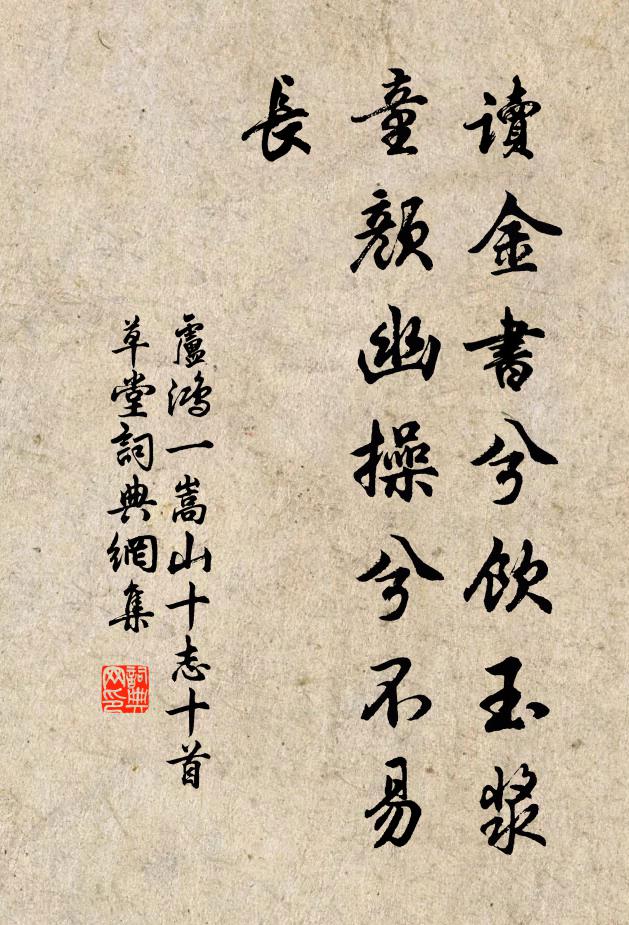 讀金書兮飲玉漿
童顏幽操兮不易
長
盧鴻一嵩山十志十首
草堂詞典網集
詞典
网印